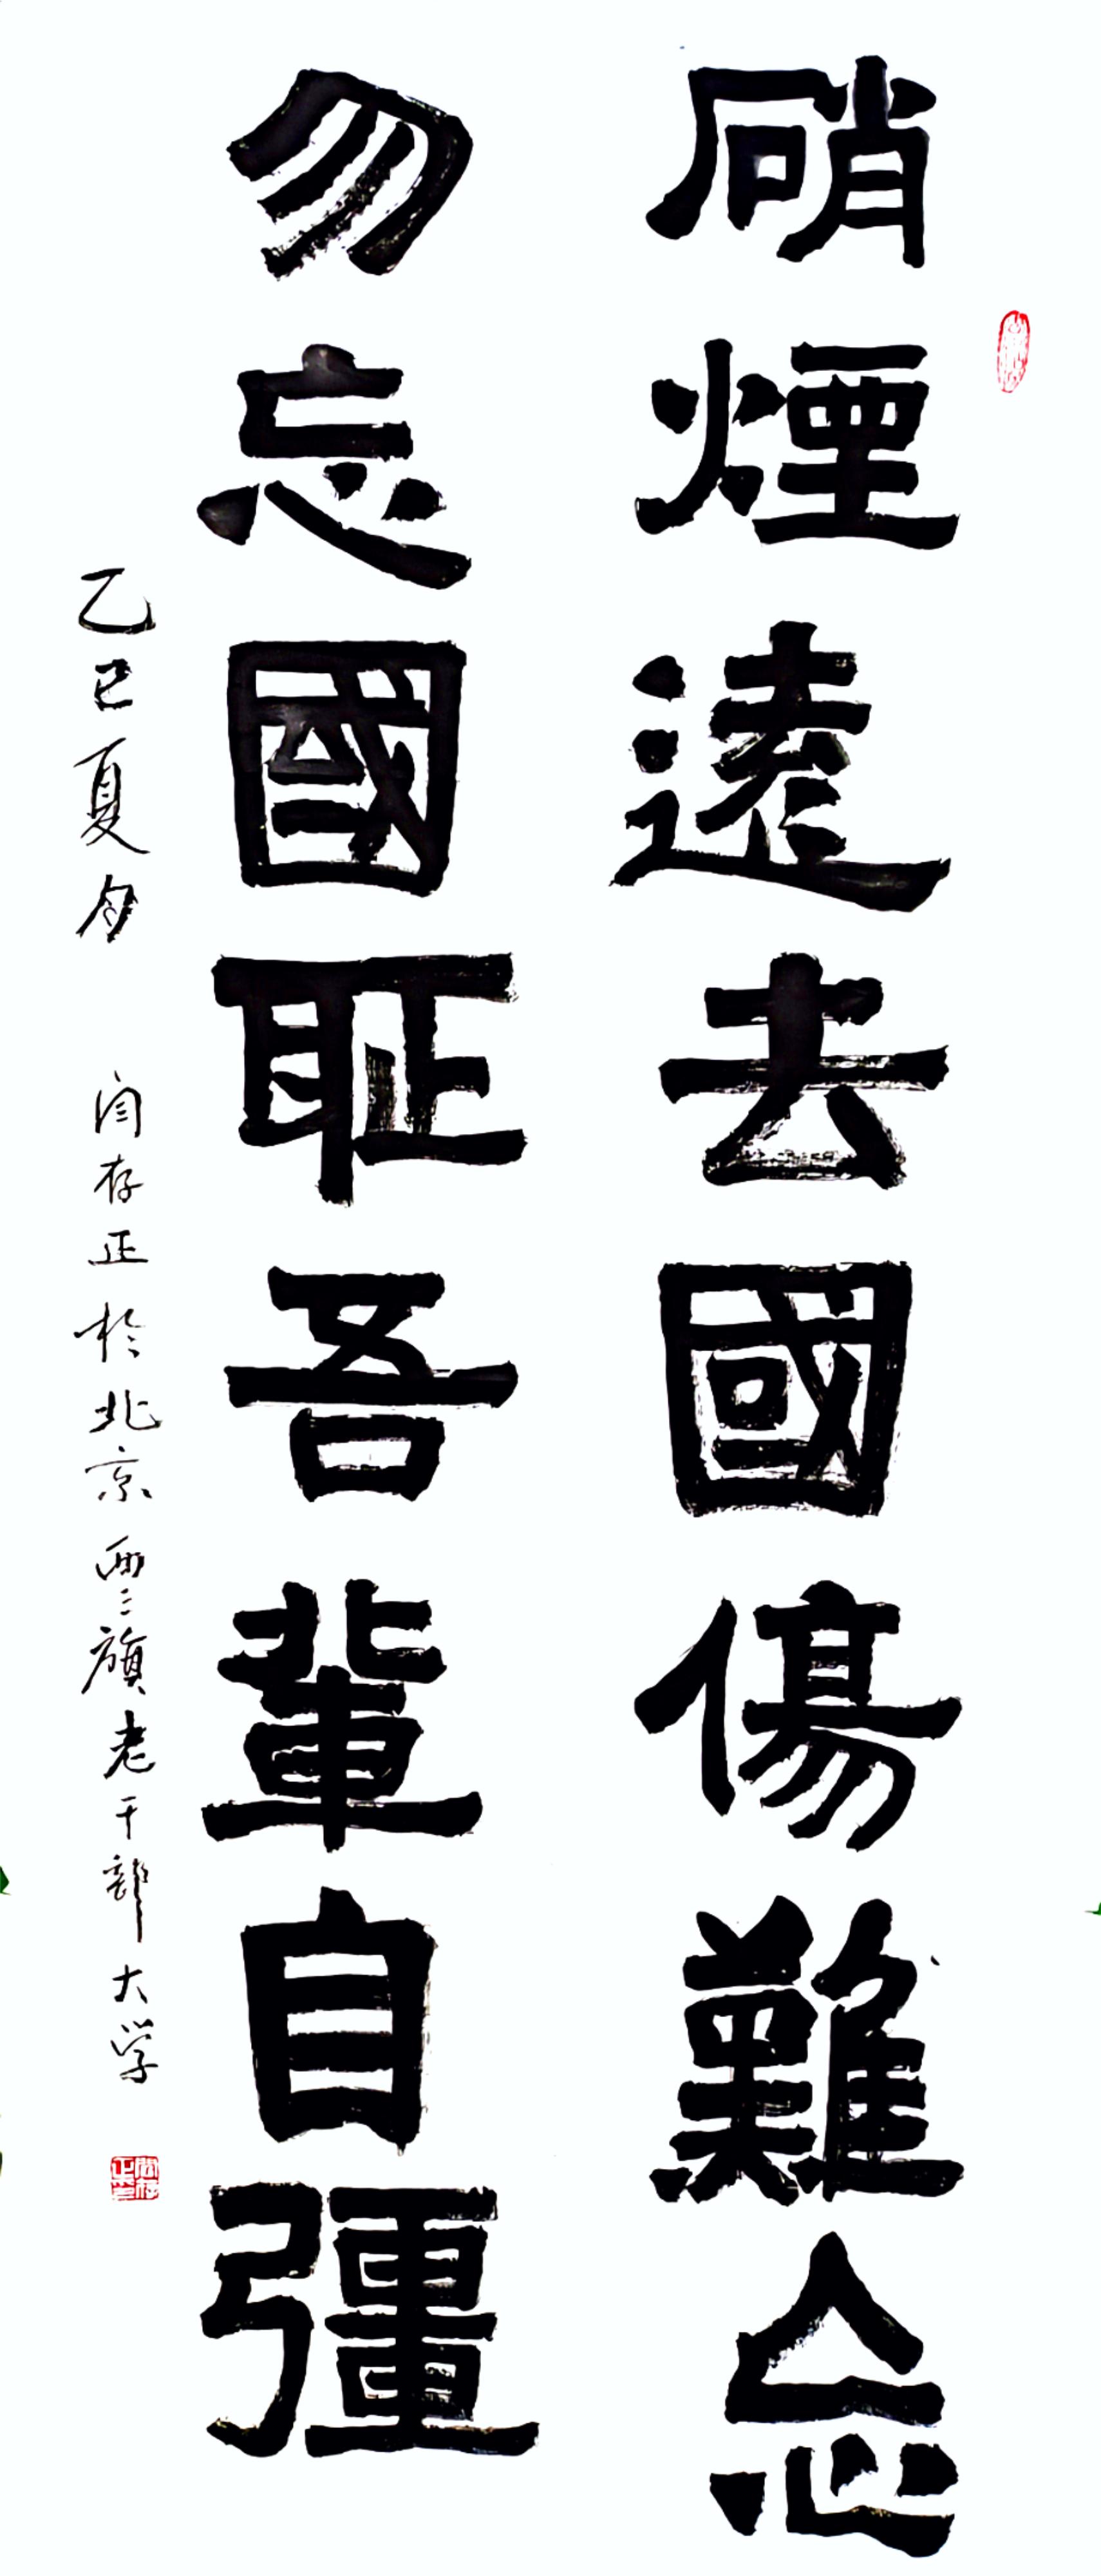 硝煙遠去國傷難忘
勿忘國耻吾輩自彊
乙巳夏月 闫存正於北京西三旗老干部大学